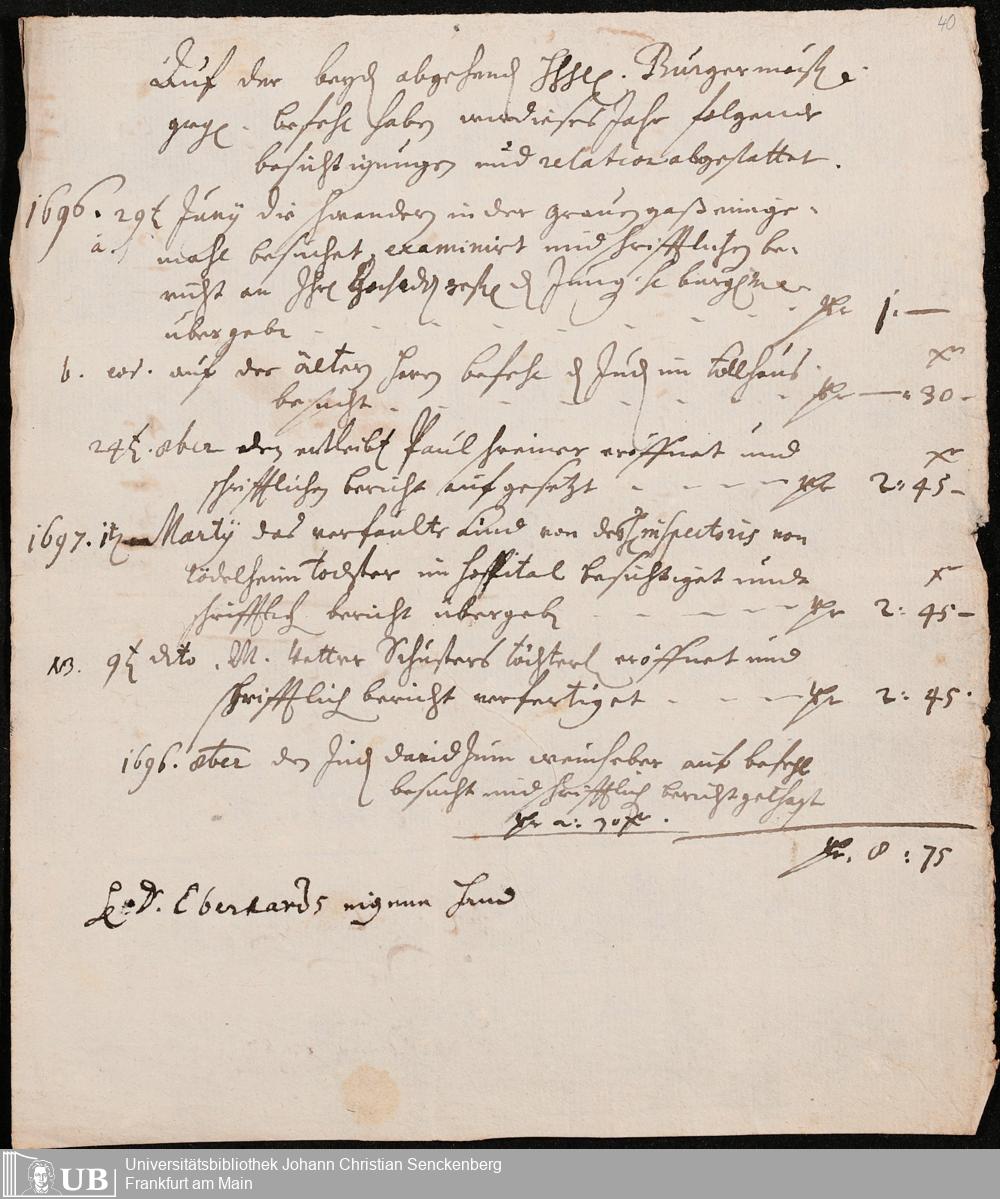 40
Auf der beyden abgehenden Burgermeister
befehl haben wir dieses Jahr folgende
besichtigungen und relation abgestattet.
1696. 29t Junÿ die in der Grauengaß einige-
a. mahl besuchet, examinirt und schrifftlichen be-
richt an Jüng: h burgerm
übergeben - - - - - - 1: —
b. eod. auf des ältern Herrn befehl d Jud im tollhaus
besucht - - - - - - — : 30 -
24t. 8ber den entleibt Paul schreiner eröffnet und
schrifftlichen bericht aufgesetzt - - - - 2: 45 -
1697. Martÿ das verfaulte Kind von des inspectoris von
Rödelheim tochter im hospital besichtiget und
schrifftlich bericht übergeben - - - - 2: 45 -
NB. 9t dito M. Vetter Schusters töchterl eröffnet und
schrifftlich bericht verfertiget - - - 2: 45.
1696. 8ber den Jud david zum auf befehl
besucht und schrifftlich bericht gethan
2: 30 xr.
8 : 75
D. Eberhards eigene Hand
UB
Universitätsbibliothek Johann Christian Senckenberg
Frankfurt am Main